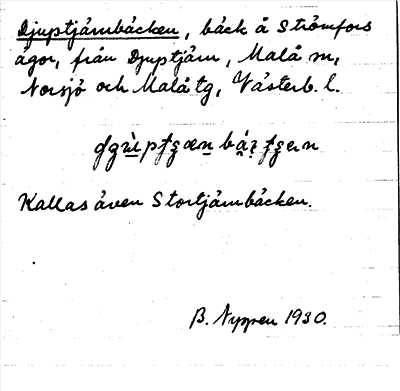 Djuptjärnbäcken, bäck å Strömfors
ägor, från Djuptjärn, Malå sn,
Norsjö och Malå tg, Västerb. l.
Kallas även Stortjärnbäcken.
B. Nyppen 1930.